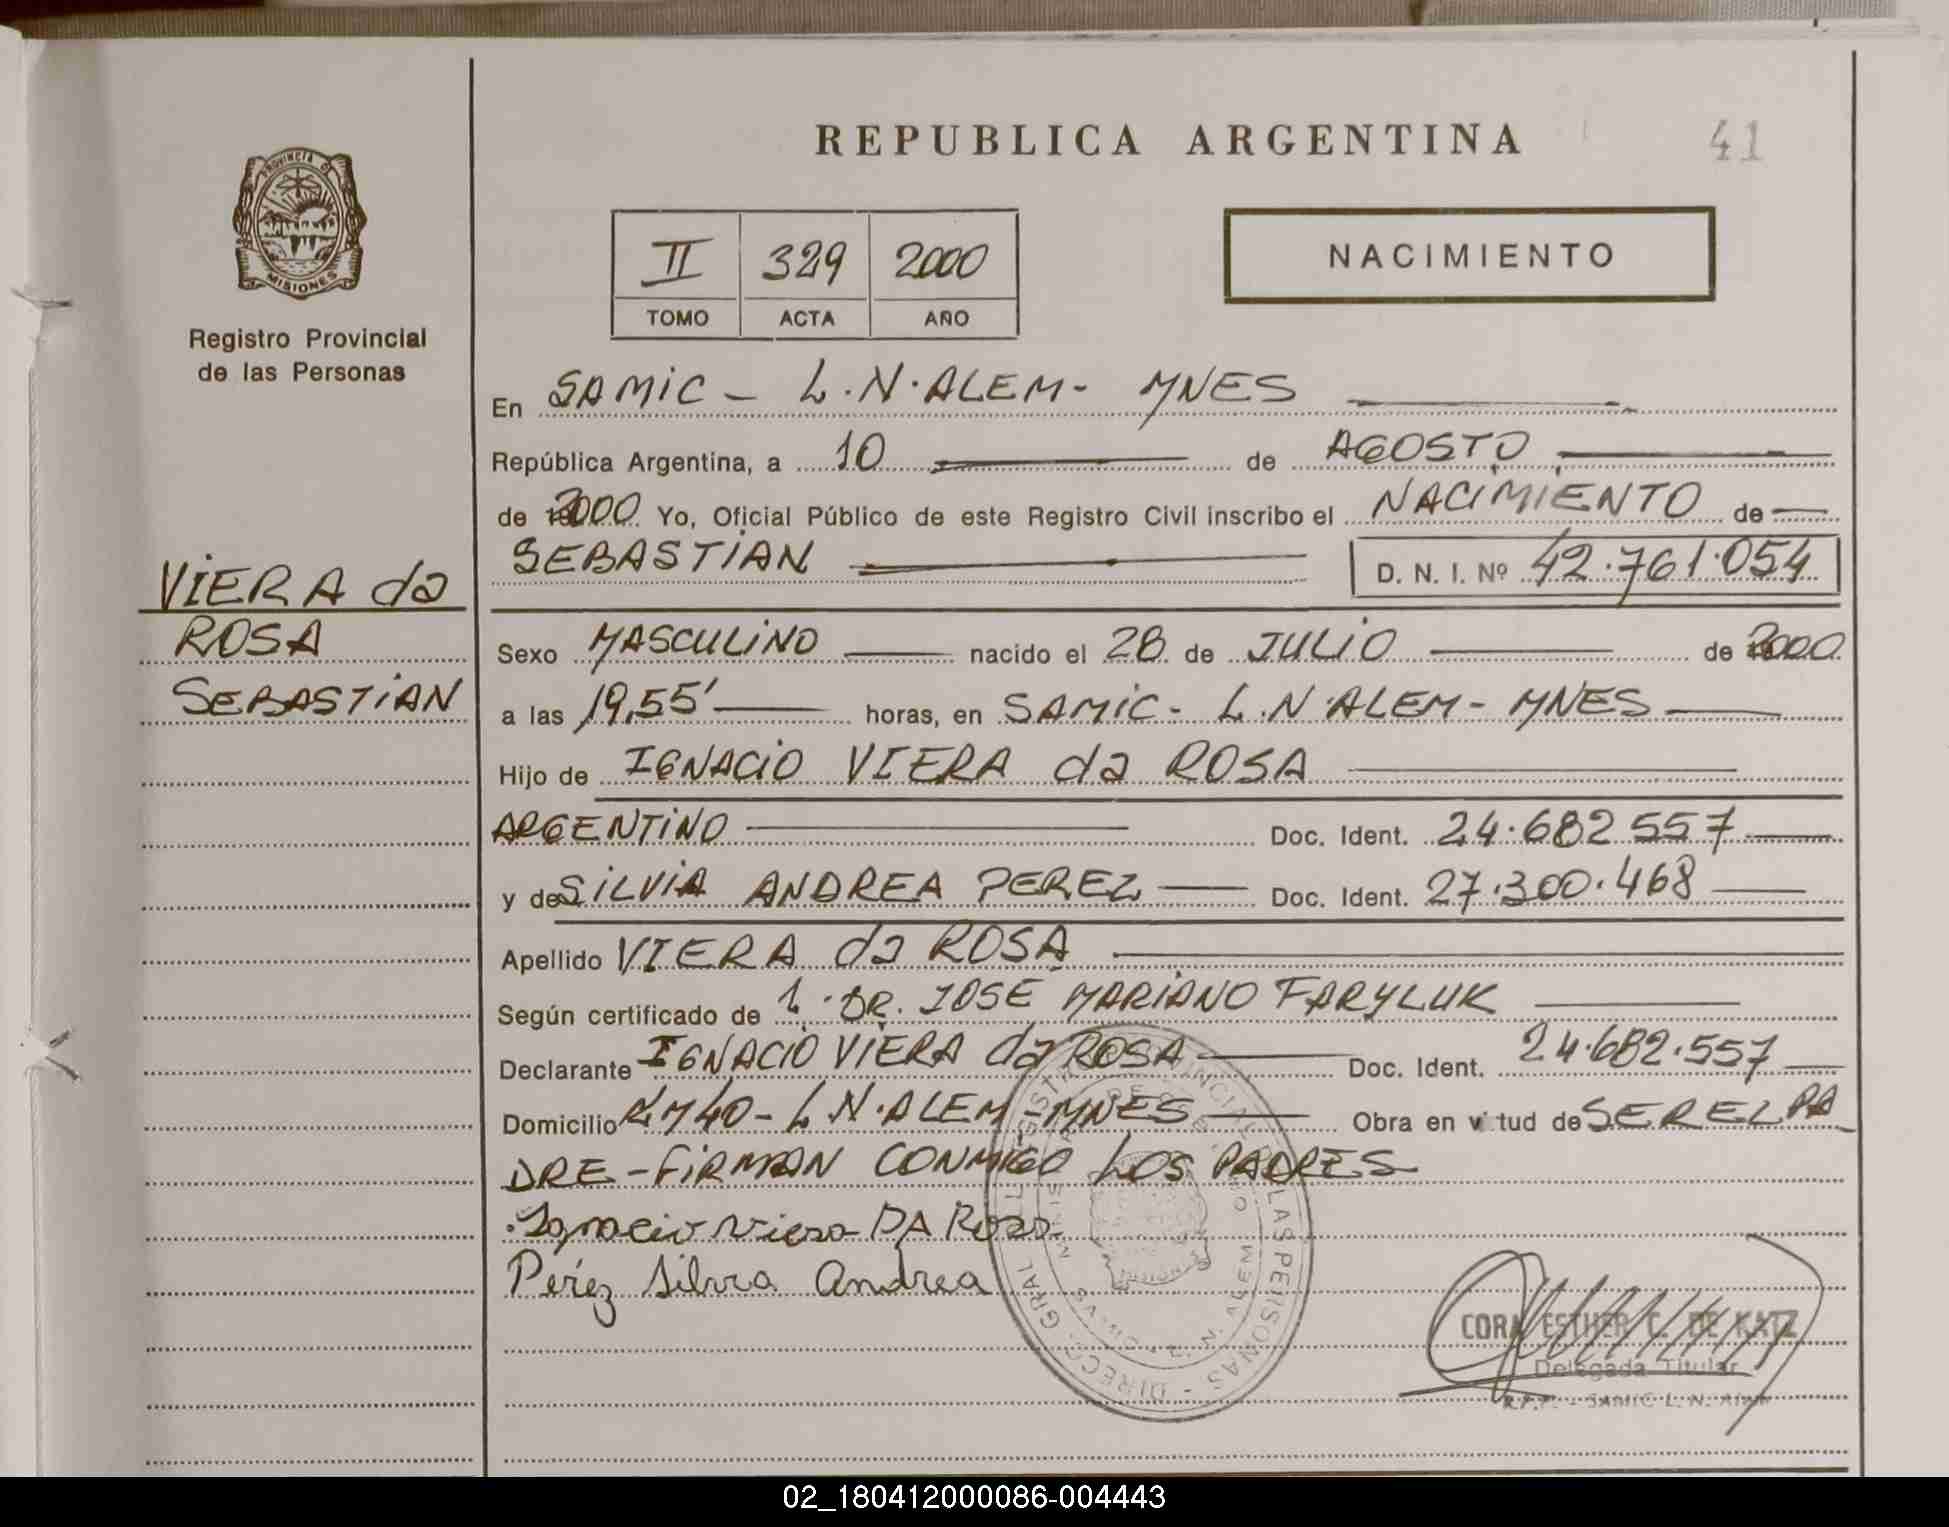 REPUBLICA ARGENTINA
41
PROVINCIA D
MISIONES
Registro Provincial
de las Personas
II 329 2000
TOMO ACTA AÑO
NACIMIENTO
En SAMIC - L.N.ALEM - MNES
República Argentina, a 10 de AGOSTO
de 2000 Yo, Oficial Público de este Registro Civil inscribo el NACIMIENTO de
SEBASTIAN D. N. I. Nº 42.761.054
VIERA da
ROSA
SEBASTIAN
Sexo MASCULINO nacido el 28 de JULIO de 2000
a las 19,55' horas, en SAMIC - L.N.ALEM - MNES
Hijo de IGNACIO VIERA da ROSA
ARGENTINO Doc. Ident. 24.682.557
y de SILVIA ANDREA PEREZ Doc. Ident. 27.300.468
Apellido VIERA da ROSA
Según certificado de 1. DR. JOSE MARIANO FARYLUK
Declarante IGNACIO VIERA da ROSA Doc. Ident. 24.682.557
Domicilio KM40 - L.N.ALEM - MNES Obra en vitud de SER EL PA
DRE - FIRMAN CONMIGO LOS PADRES
Ignacio Viera DA Rosa
Perez Silvia Andrea
CORA ESTHER C. DE KATZ
Delegada Titular
R.P.P. - SAMIC L. N. Alem
DIRECC. GRAL LAS PERSONAS
L. N. ALEM
02_180412000086-004443